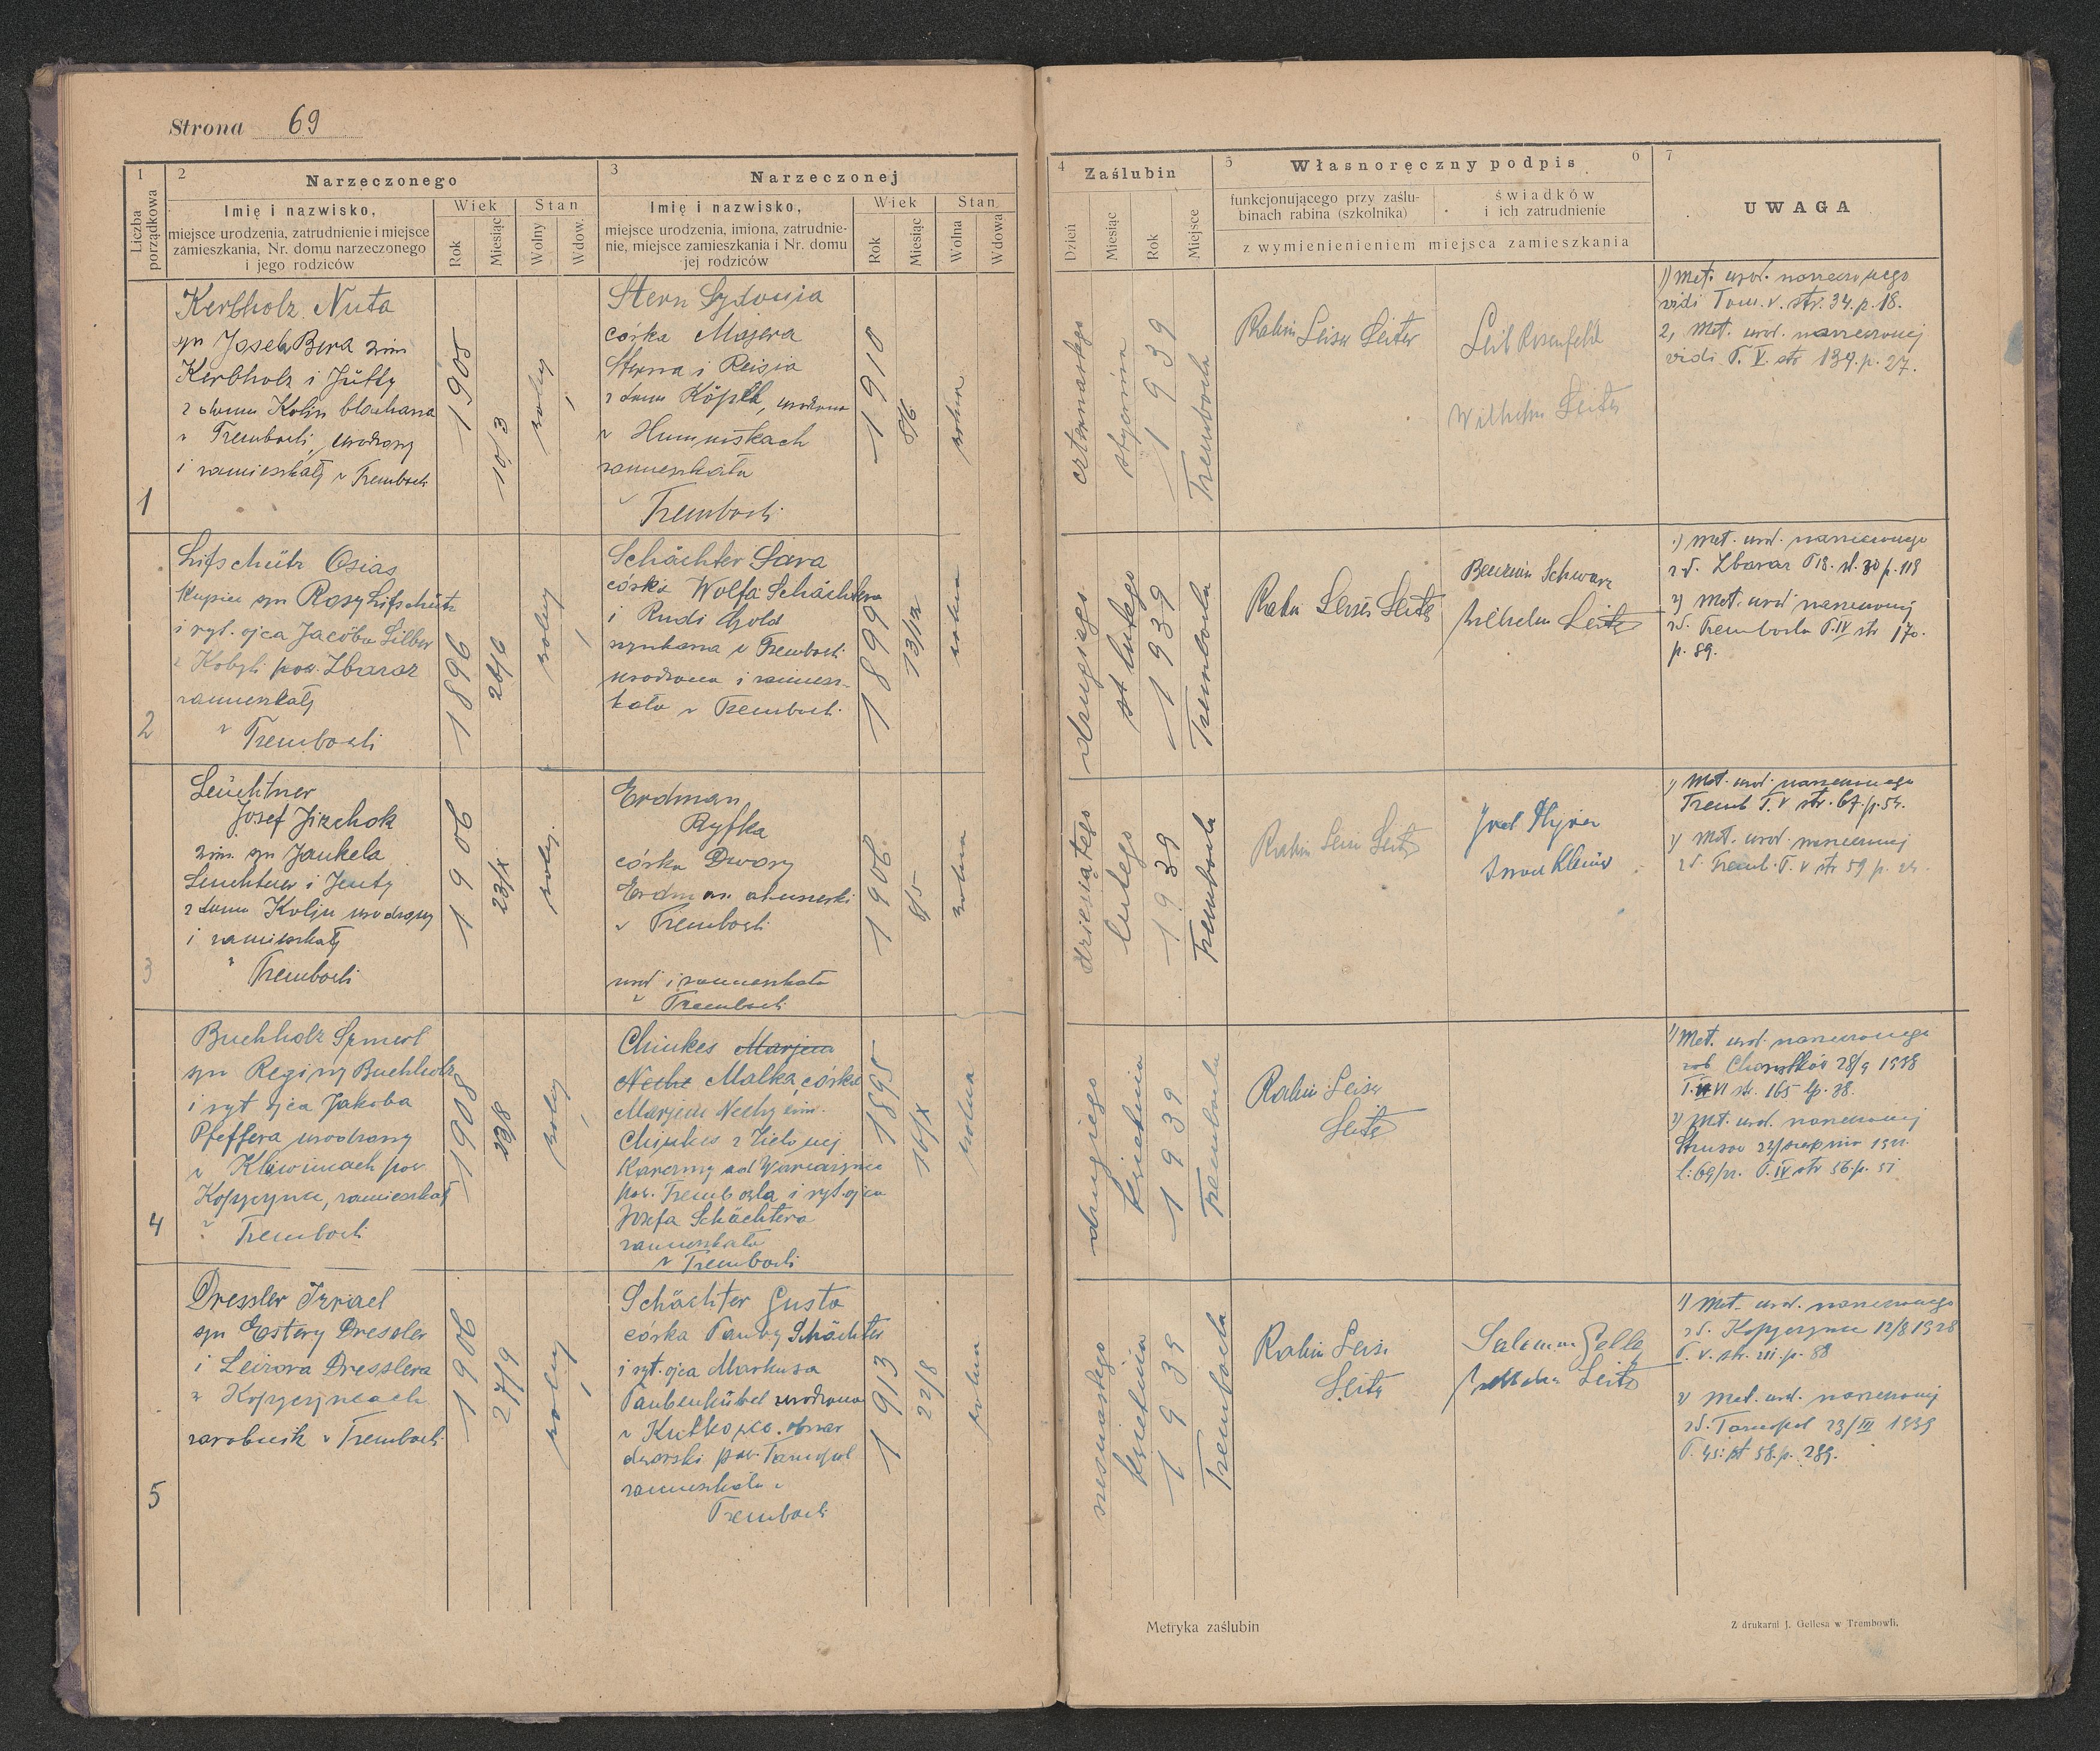 Strona 69
1
Liczba porządkowa
2
Narzeczonego
Imię i nazwisko,
miejsce urodzenia, zatrudnienie i miejsce
zamieszkania, Nr. domu narzeczonego
i jego rodziców
Wiek
Rok
Miesiąc
Stan
Wolny
Wdow.
3
Narzeczonej
Imię i nazwisko,
miejsce urodzenia, imiona, zatrudnie-
nie, miejsce zamieszkania i Nr. domu
jej rodziców
Wiek
Rok
Miesiąc
Stan
Wolna
Wdowa
4
Zaślubin
Dzień
Miesiąc
Rok
Miejsce
5
Własnoręczny podpis
6
funkcjonującego przy zaślu-
binach rabina (szkolnika)
świadków
i ich zatrudnienie
z wymienienieniem miejsca zamieszkania
7
UWAGA
1
Kerbholz Nuta
syn Josela Bera
Kerbholz i Jütty
z domu Kolin blacharza
w Trembowli, urodzony
i zamieszkały w Trembowli
1905
10/3
wolny
Stern Sydonia
córka Majera
Sterna i Reisia
z domu, urodzona
w Humniskach
zamieszkała
w
Trembowli
1910
wolna
czternastego
stycznia
1939
Trembowla
Rabin Leiser Leiter
Leib Rosenfeld
Wilhelm Leiter
1) Met. urod. narzeczonego
vidi Tom. V. str. 34. p. 18.
2, Met. urod. narzeczonej
vidi T. V. str 134. p. 27.
2
Lifschütz Osias
kupiec syn Rosy Lifschütz
i ryt. ojca Jacóba Silber
z Kobyli pow. Zbaraż
zamieszkały
w Trembowli
1896
26/6
wolny
Schächter Sara
córka Wolfa Schächtera
i Rudi Gold
szynkarza w Trembowli
urodzona i zamiesz-
kała w Trembowli
1899
13/12
wolna
drugiego
lutego
1939
Trembowla
Rabin Leiser Leiter
Schwarz
Wilhelm Leiter
1) Met. urod. narzeczonego
Zbaraż T 18. st. 30 p. 118
2) Met. urod narzeczonej
Trembowla T. IV str 170.
p. 89.
3
Leuchtner
Josef Jizchok
zim. syn Jankela
Leuchtner i Jenty
z domu Kolin urodzony
i zamieszkały
w Trembowli
1906
23/X
wolny
Erdman
Ryfka
córka Dwory
Erdman
w Trembowli
urod i zamieszkała
w Trembowli
1906
8/5
wolna
dziesiątego
lutego
1939
Trembowla
Rabin Leiser Leiter
1) Met. urod. narzeczonego
Tremb T. V str. 67. p. 54.
2) Met. urod. narzeczonej
Tremb. T. V str 59 p. 24
4
Buchholz Szmerl
syn Reginy Buchholz
i ryt ojca Jakoba
Pfeffera urodzony
w Kliwinach pow.
Kopyczynce, zamieszkały
w Trembowli
1908
23/8
wolny
Chinkes Marjem
Neche Malka, córka
Marjem Nechy zim.
Chinkes z Zielonej
Karczmy
pow. Trembowla i ryt. ojca
Josefa Schächtera
zamieszkała
w Trembowli
1895
16/X
wolna
drugiego
kwietnia
1939
Trembowla
Rabin Leiser
Leiter
1) Met. urod. narzeczonego
Chorostków 28/9 1938
VI str. 165 lp. 38.
2) Met. urod. narzeczonej
Strusów 22/sierpnia
T. IV str 56. p. 51
5
Dressler Izrael
syn Estery Dressler
i Leizora Dresslera
w Kopyczyńcach
zarobnik w Trembowli
1906
27/9
wolny
Schächter Gusta
córka Tauby Schächter
i ryt. ojca Markusa
Taubenkübel urodzona
w Kutkowce. obszar
dworski pow. Tarnopol
zamieszkała w
Trembowli
1913
22/8
wolna
kwietnia
1939
Trembowla
Rabin Leiser
Leiter
Salomon Gelles
Wilhelm Leiter
1) Met. urod. narzeczonego
Kopyczynce 12/8 1928
T. V. str. 211. p. 88
2) Met. urod. narzeczonej
Tarnopol 23/III 1939
T. 45: st 58. p. 289.
Metryka zaślubin
Z drukarni J. Gellesa w Trembowli.